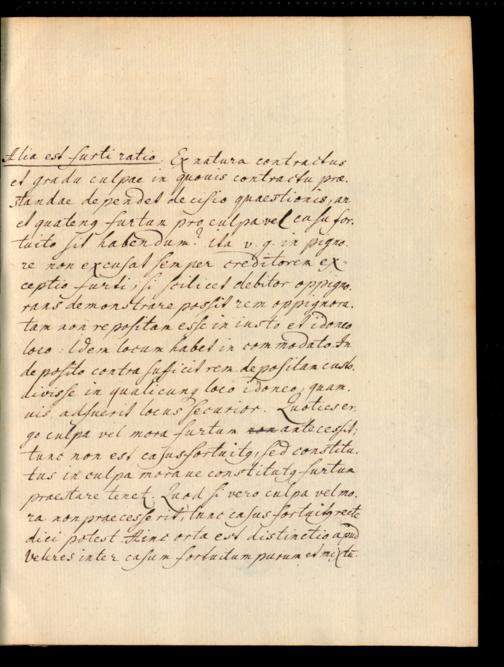 Alia est furti ratio. Ex natura contractus
et gradu culpae in quovis contractu præ-
standae dependet decisio quaestionis, an
et quatenq furtum pro culpa vel casu for-
tuito sit habendum? ita v. g. in pigno-
re non excusat semper creditorem ex-
ceptio furti, si scilicet debitor oppigno-
rans demonstrare possit rem oppignora-
tam non repositam esse in iusto et idoneo
loco. Idem locum habet in commodato. In
deposito contra suficit rem depositam custo-
divisse in qualicunq loco idoneo, quam-
vis adfuerit locus securior. Quoties er-
go culpa vel mora furtum non antecessit,
tunc non est casus fortuitq, sed constitu-
tus in culpa morave constitutq furtum
praestare tenet. Quod si vero culpa vel mo-
ra non praecesserit, tunc casus fortuitq recte
dici potest. Hinc orta est distinctio apud
veteres inter casum fortuitum purum et mixtu-